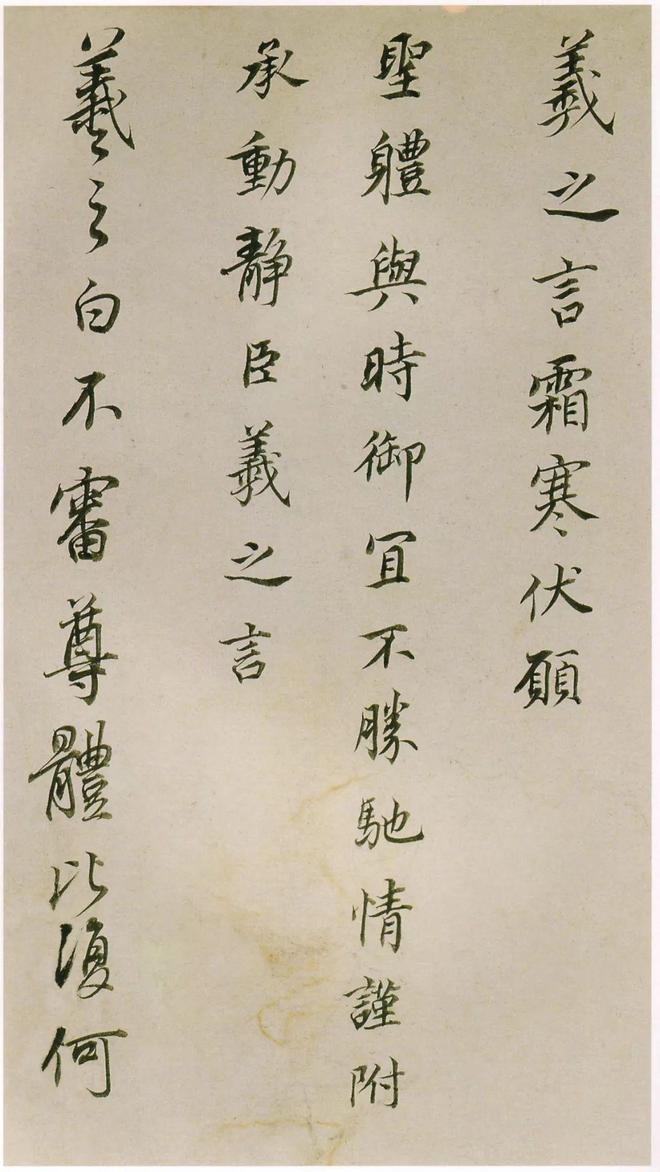 羲之言霜寒伏願
聖軆與時御宜不勝馳情謹附
承動靜臣羲之言
羲之白不審尊體比復何